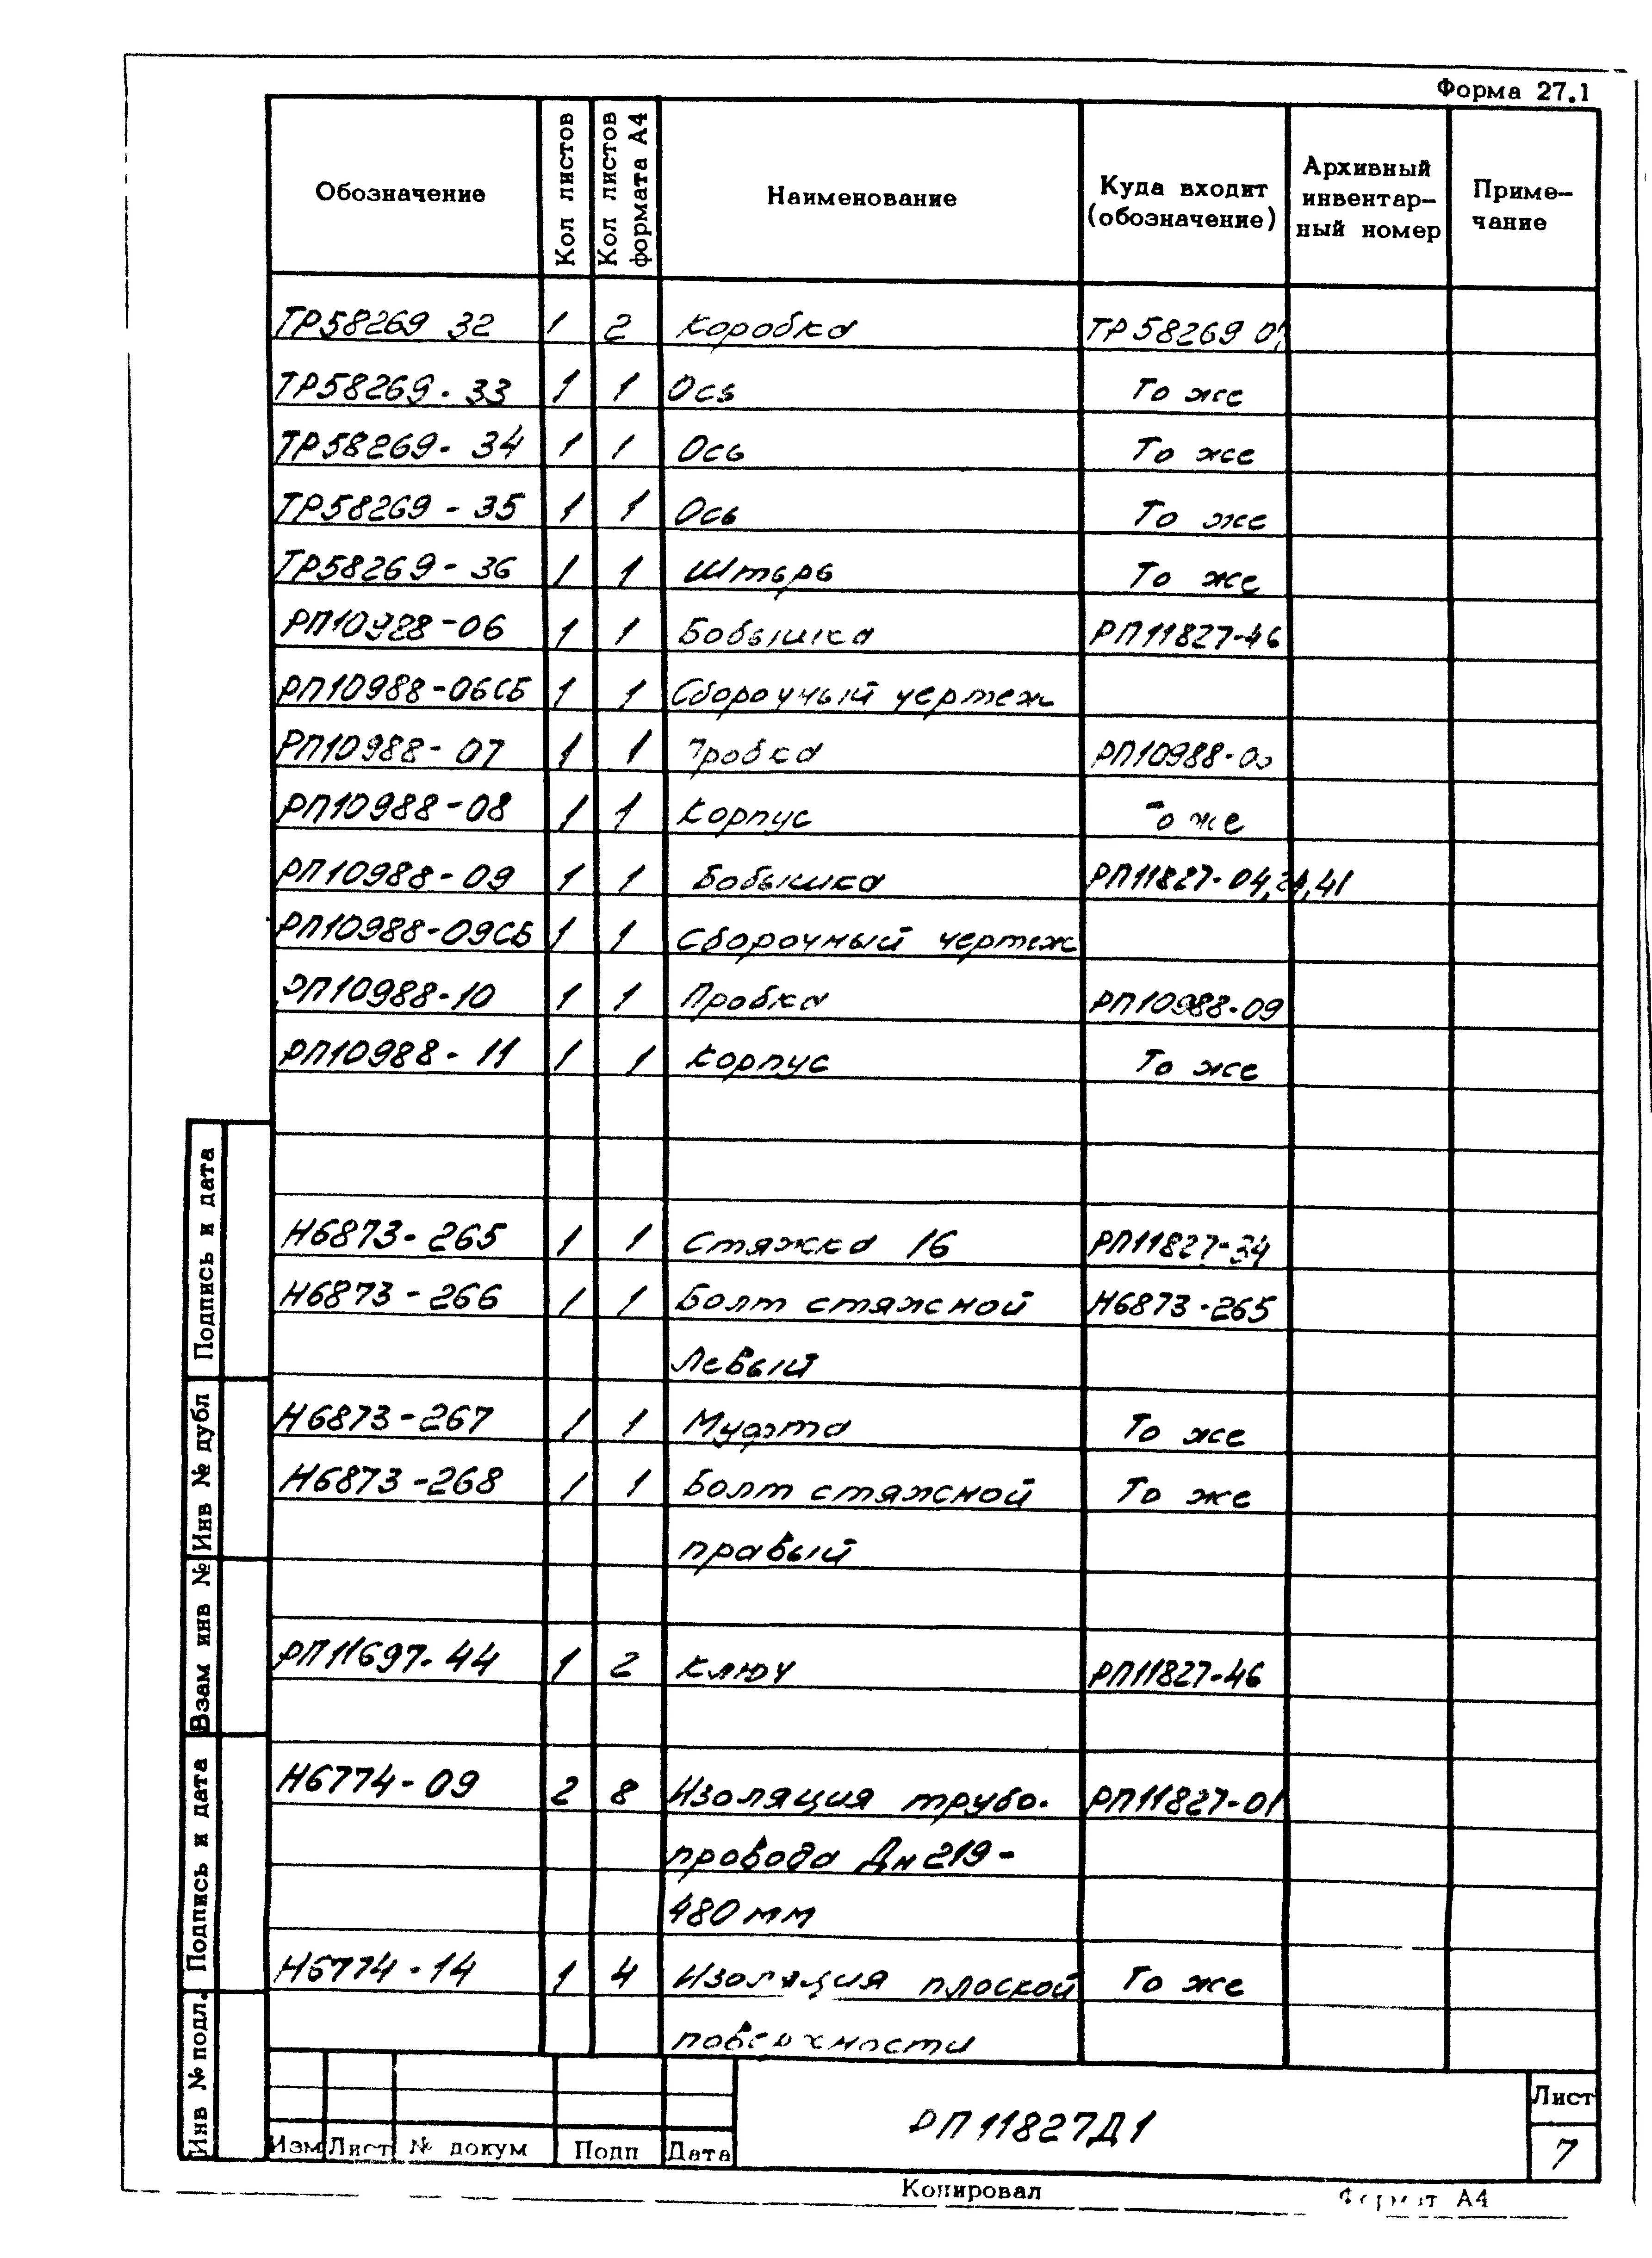 Форма 27.1
Обозначение | Кол листов | Кол листов формата А4 | Наименование | Куда входит (обозначение) | Архивный инвентар- ный номер | Приме- чание
ТР58269 32 1 2 Коробка ТР58269
ТР58269-33 1 1 Ось То же
ТР58269-34 1 1 Ось То же
ТР58269-35 1 1 Ось То же
ТР58269-36 1 1 Штырь То же
РП10988-06 1 1 Бобышка РП11827-46
РП10988-06СБ 1 1 Сборочный чертеж
РП10988-07 1 1 Пробка
РП10988-08 1 1 Корпус То же
РП10988-09 1 1 Бобышка РП11827-04,24,41
РП10988-09СБ 1 1 Сборочный чертеж
РП10988-10 1 1 Пробка РП10988-09
РП10988-11 1 1 Корпус То же
Н6873-265 1 1 Стяжка 16 РП11827-34
Н6873-266 1 1 Болт стяжной Н6873-265
Левый
Н6873-267 1 1 Муфта То же
Н6873-268 1 1 Болт стяжной То же
правый
РП11697-44 1 2 Ключ РП11827-46
Н6774-09 2 8 Изоляция трубо- РП11827-01
провода Дн 219-
480 мм
Н6774-14 1 4 Изоляция плоской То же
поверхности
Подпись и дата
Инв № дубл
Взам инв №
Подпись и дата
Инв № подл.
Изм Лист № докум Подп Дата
РП11827Д1
Лист
7
Копировал
Формат А4